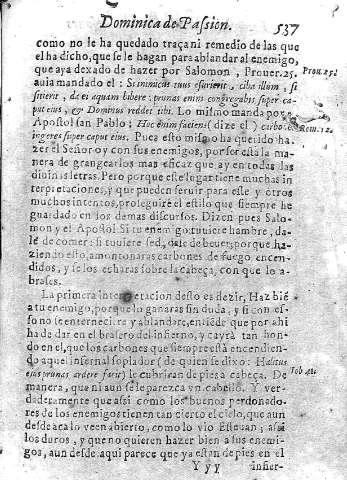 Dominica de Passion.
537
como no le ha quedado traça ni remedio de las que
el ha dicho, que se le hagan para ablandar al enemigo,
que aya dexado de hazer por Salomon, Prouer. 25.
Prou. 25.
auia mandado el: Si inimicus tuus esurierit, ciba illum, si
sitierit, da ei aquam bibere: prunas enim congregabis super ca-
put eius, & Dominus reddet tibi. Lo mismo manda por el
Apostol san Pablo: Hoc enim faciens (dize el) carbones
Rom. 12.
ingeres super caput eius. Pues esto mismo ha querido ha-
zer el Señor oy con sus enemigos, por ser esta la ma-
nera de grangearlos mas eficaz que ay en todas las
diuinas letras. Pero porque este lugar tiene muchas in
terpretaciones, y que pueden seruir para este y otros
muchos intentos, proseguiré el estilo que siempre he
guardado en los demas discursos. Dizen pues Salo-
mon y el Apostol: Si tu enemigo tuuiere hambre, da-
le de comer: si tuuiere sed, dale de beuer; porque ha-
ziendo esto, amontonaras carbones de fuego encen-
didos, y se los echaras sobre la cabeça, con que lo a-
brases.
La primera interpretacion desto es dezir, Haz biē
a tu enemigo, porque lo ganaras sin duda, y si con es-
so no se enterneciere y ablandare, entiēde que por ahi
ha de dar en el brasero del infierno, y cayrà tan hon-
do en el, que los carbones que siempre està encendien-
do aquel infernal soplador de quien se dixo: Halitus
eius prunas ardere facit; le cubriran de pies a cabeça. De
Iob 41.
manera, que ni aun se le parezca vn cabello. Y ver-
daderamente que assi como los buenos perdonado-
res de los enemigos tienen tan cierto el cielo, que aun
desde aca lo veen abierto, como lo vio Esteuan; assi
los duros, y que no quieren hazer bien a sus enemi-
gos, aun desde aqui parece que ya estan de pies en el
Y y y
infier-